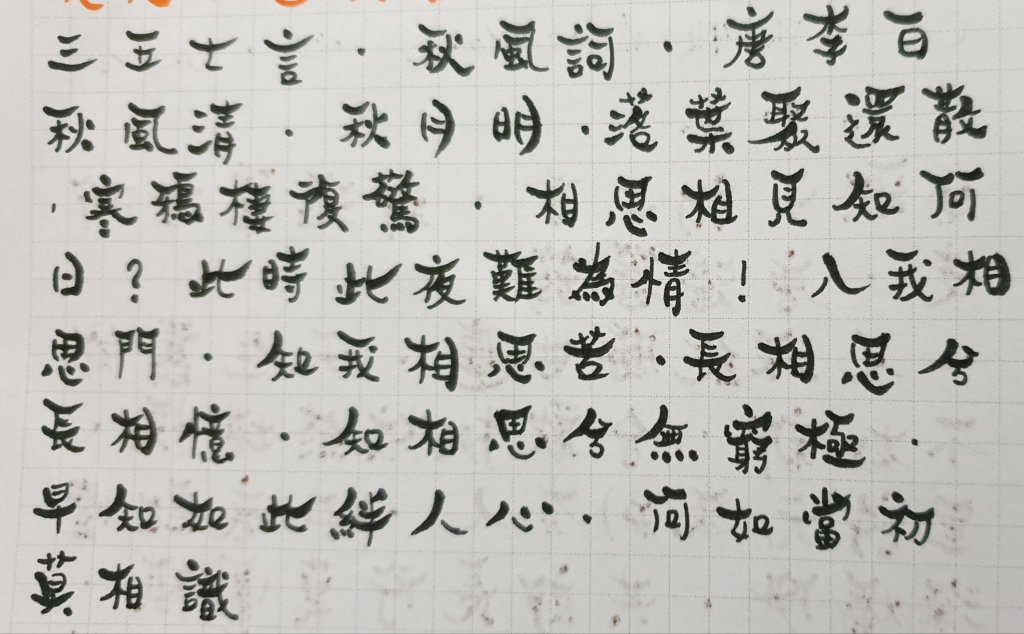 三五七言·秋風詞·唐李白
秋風清·秋月明·落葉聚還散
·寒鴉棲復驚·相思相見知何
日?此時此夜難為情!入我相
思門·知我相思苦·長相思兮
長相憶·知相思兮無窮極·
早知如此絆人心·何如當初
莫相識